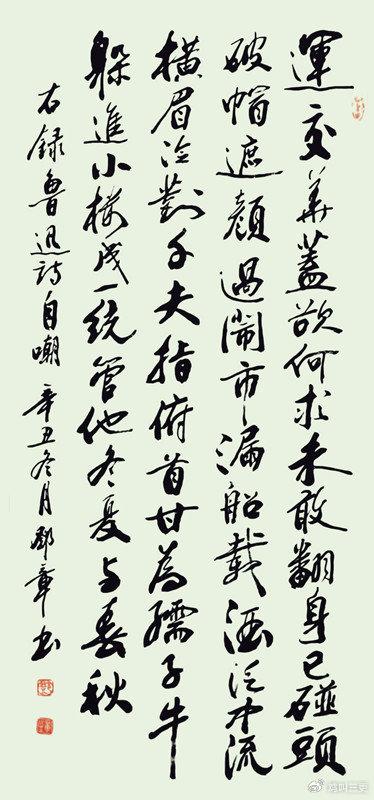 運交華蓋欲何求未敢翻身已碰頭
破帽遮顏過鬧市漏船載酒泛中流
橫眉冷對千夫指俯首甘為孺子牛
躲進小樓成一統管他冬夏与春秋
右録魯迅詩自嘲 辛丑冬月 章书